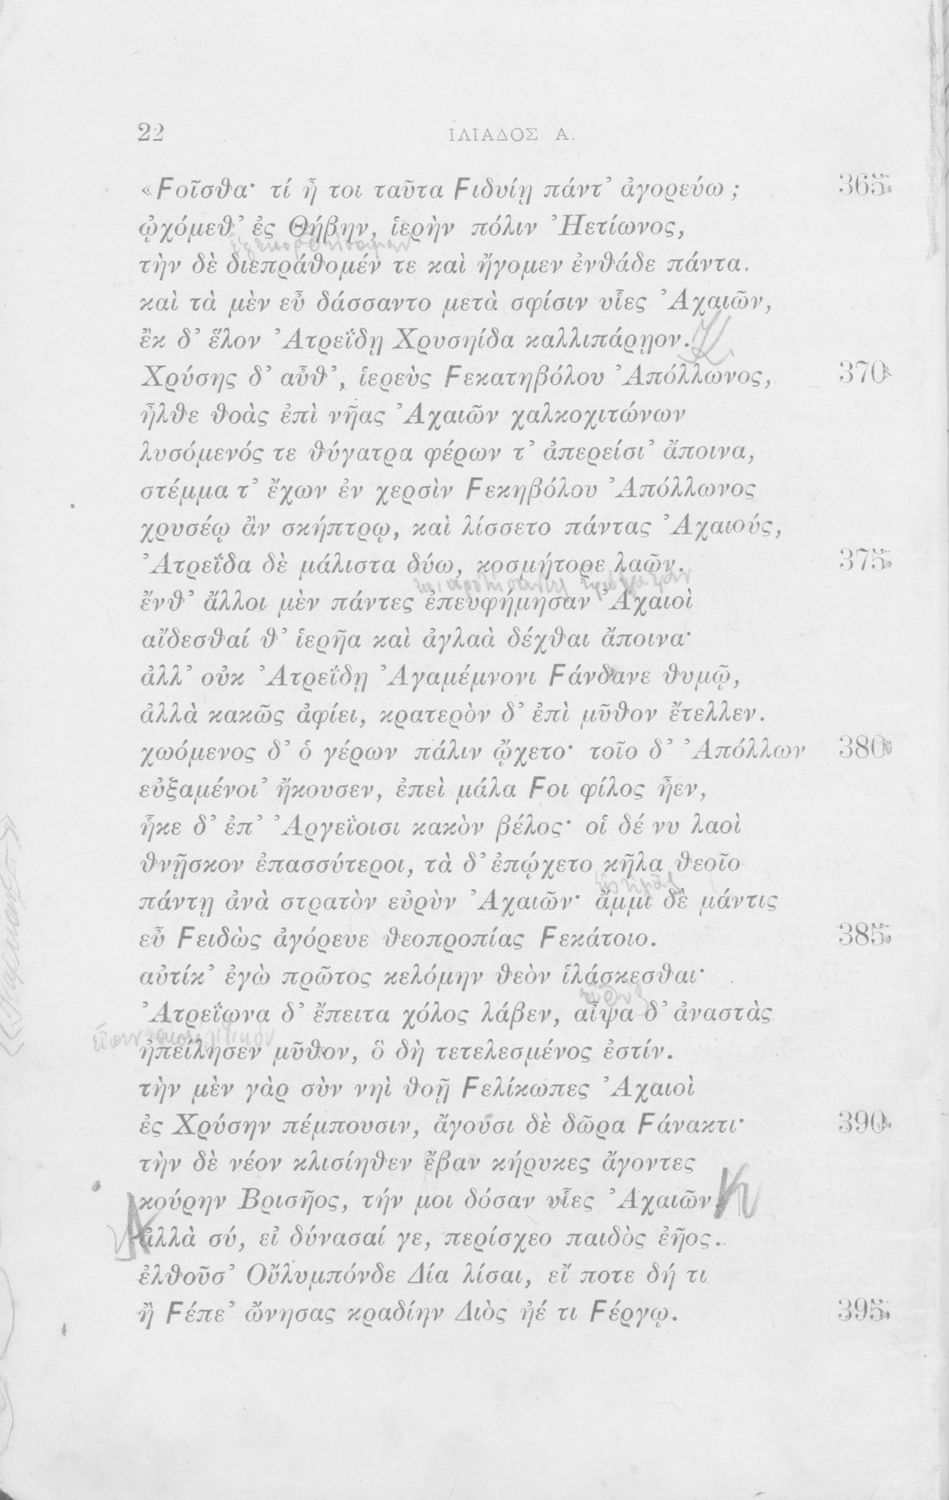 22 ΙΛΙΑΔΟΣ Α.
«Ϝοῖσθα· τί ἦ τοι ταῦτα Ϝιδυίῃ πάντ’ ἀγορεύω ; 365
ᾠχόμεθ’ ἐς Θήβην, ἱερὴν πόλιν Ἠετίωνος,
τὴν δὲ διεπράθομέν τε καὶ ἤγομεν ἐνθάδε πάντα.
καὶ τὰ μὲν εὖ δάσσαντο μετὰ σφίσιν υἷες Ἀχαιῶν,
ἐκ δ’ ἕλον Ἀτρεΐδῃ Χρυσηίδα καλλιπάρῃον.
Χρύσης δ’ αὖθ’, ἱερεὺς Ϝεκατηβόλου Ἀπόλλωνος, 370
ἦλθε θοὰς ἐπὶ νῆας Ἀχαιῶν χαλκοχιτώνων
λυσόμενός τε θύγατρα φέρων τ’ ἀπερείσι’ ἄποινα,
στέμμα τ’ ἔχων ἐν χερσὶν Ϝεκηβόλου Ἀπόλλωνος
χρυσέῳ ἂν σκήπτρῳ, καὶ λίσσετο πάντας Ἀχαιούς,
Ἀτρεΐδα δὲ μάλιστα δύω, κοσμήτορε λαῶν. 375
ἔνθ’ ἄλλοι μὲν πάντες ἐπευφήμησαν Ἀχαιοὶ
αἴδεσθαί θ’ ἱερῆα καὶ ἀγλαὰ δέχθαι ἄποινα·
ἀλλ’ οὐκ Ἀτρεΐδῃ Ἀγαμέμνονι Ϝάνδανε θυμῷ,
ἀλλὰ κακῶς ἀφίει, κρατερὸν δ’ ἐπὶ μῦθον ἔτελλεν.
χωόμενος δ’ ὁ γέρων πάλιν ᾤχετο· τοῖο δ’ Ἀπόλλων 380
εὐξαμένοι’ ἤκουσεν, ἐπεὶ μάλα Ϝοι φίλος ἦεν,
ἧκε δ’ ἐπ’ Ἀργεΐοισι κακὸν βέλος· οἱ δέ νυ λαοὶ
θνῇσκον ἐπασσύτεροι, τὰ δ’ ἐπῴχετο κῆλα θεοῖο
πάντῃ ἀνὰ στρατὸν εὐρὺν Ἀχαιῶν· ἄμμι δὲ μάντις
εὖ Ϝειδὼς ἀγόρευε θεοπροπίας Ϝεκάτοιο. 385
αὐτίκ’ ἐγὼ πρῶτος κελόμην θεὸν ἱλάσκεσθαι·
Ἀτρεΐωνα δ’ ἔπειτα χόλος λάβεν, αἶψα δ’ ἀναστὰς
ἠπείλησεν μῦθον, ὃ δὴ τετελεσμένος ἐστίν.
τὴν μὲν γὰρ σὺν νηὶ θοῇ Ϝελίκωπες Ἀχαιοὶ
ἐς Χρύσην πέμπουσιν, ἄγουσι δὲ δῶρα Ϝάνακτι· 390
τὴν δὲ νέον κλισίηθεν ἔβαν κήρυκες ἄγοντες
κούρην Βρισῆος, τήν μοι δόσαν υἷες Ἀχαιῶν
ἀλλὰ σύ, εἰ δύνασαί γε, περίσχεο παιδὸς ἐῆος.
ἐλθοῦσ’ Οὔλυμπόνδε Δία λίσαι, εἴ ποτε δή τι
ἢ Ϝέπε’ ὤνησας κραδίην Διὸς ἠέ τι Ϝέργῳ. 395